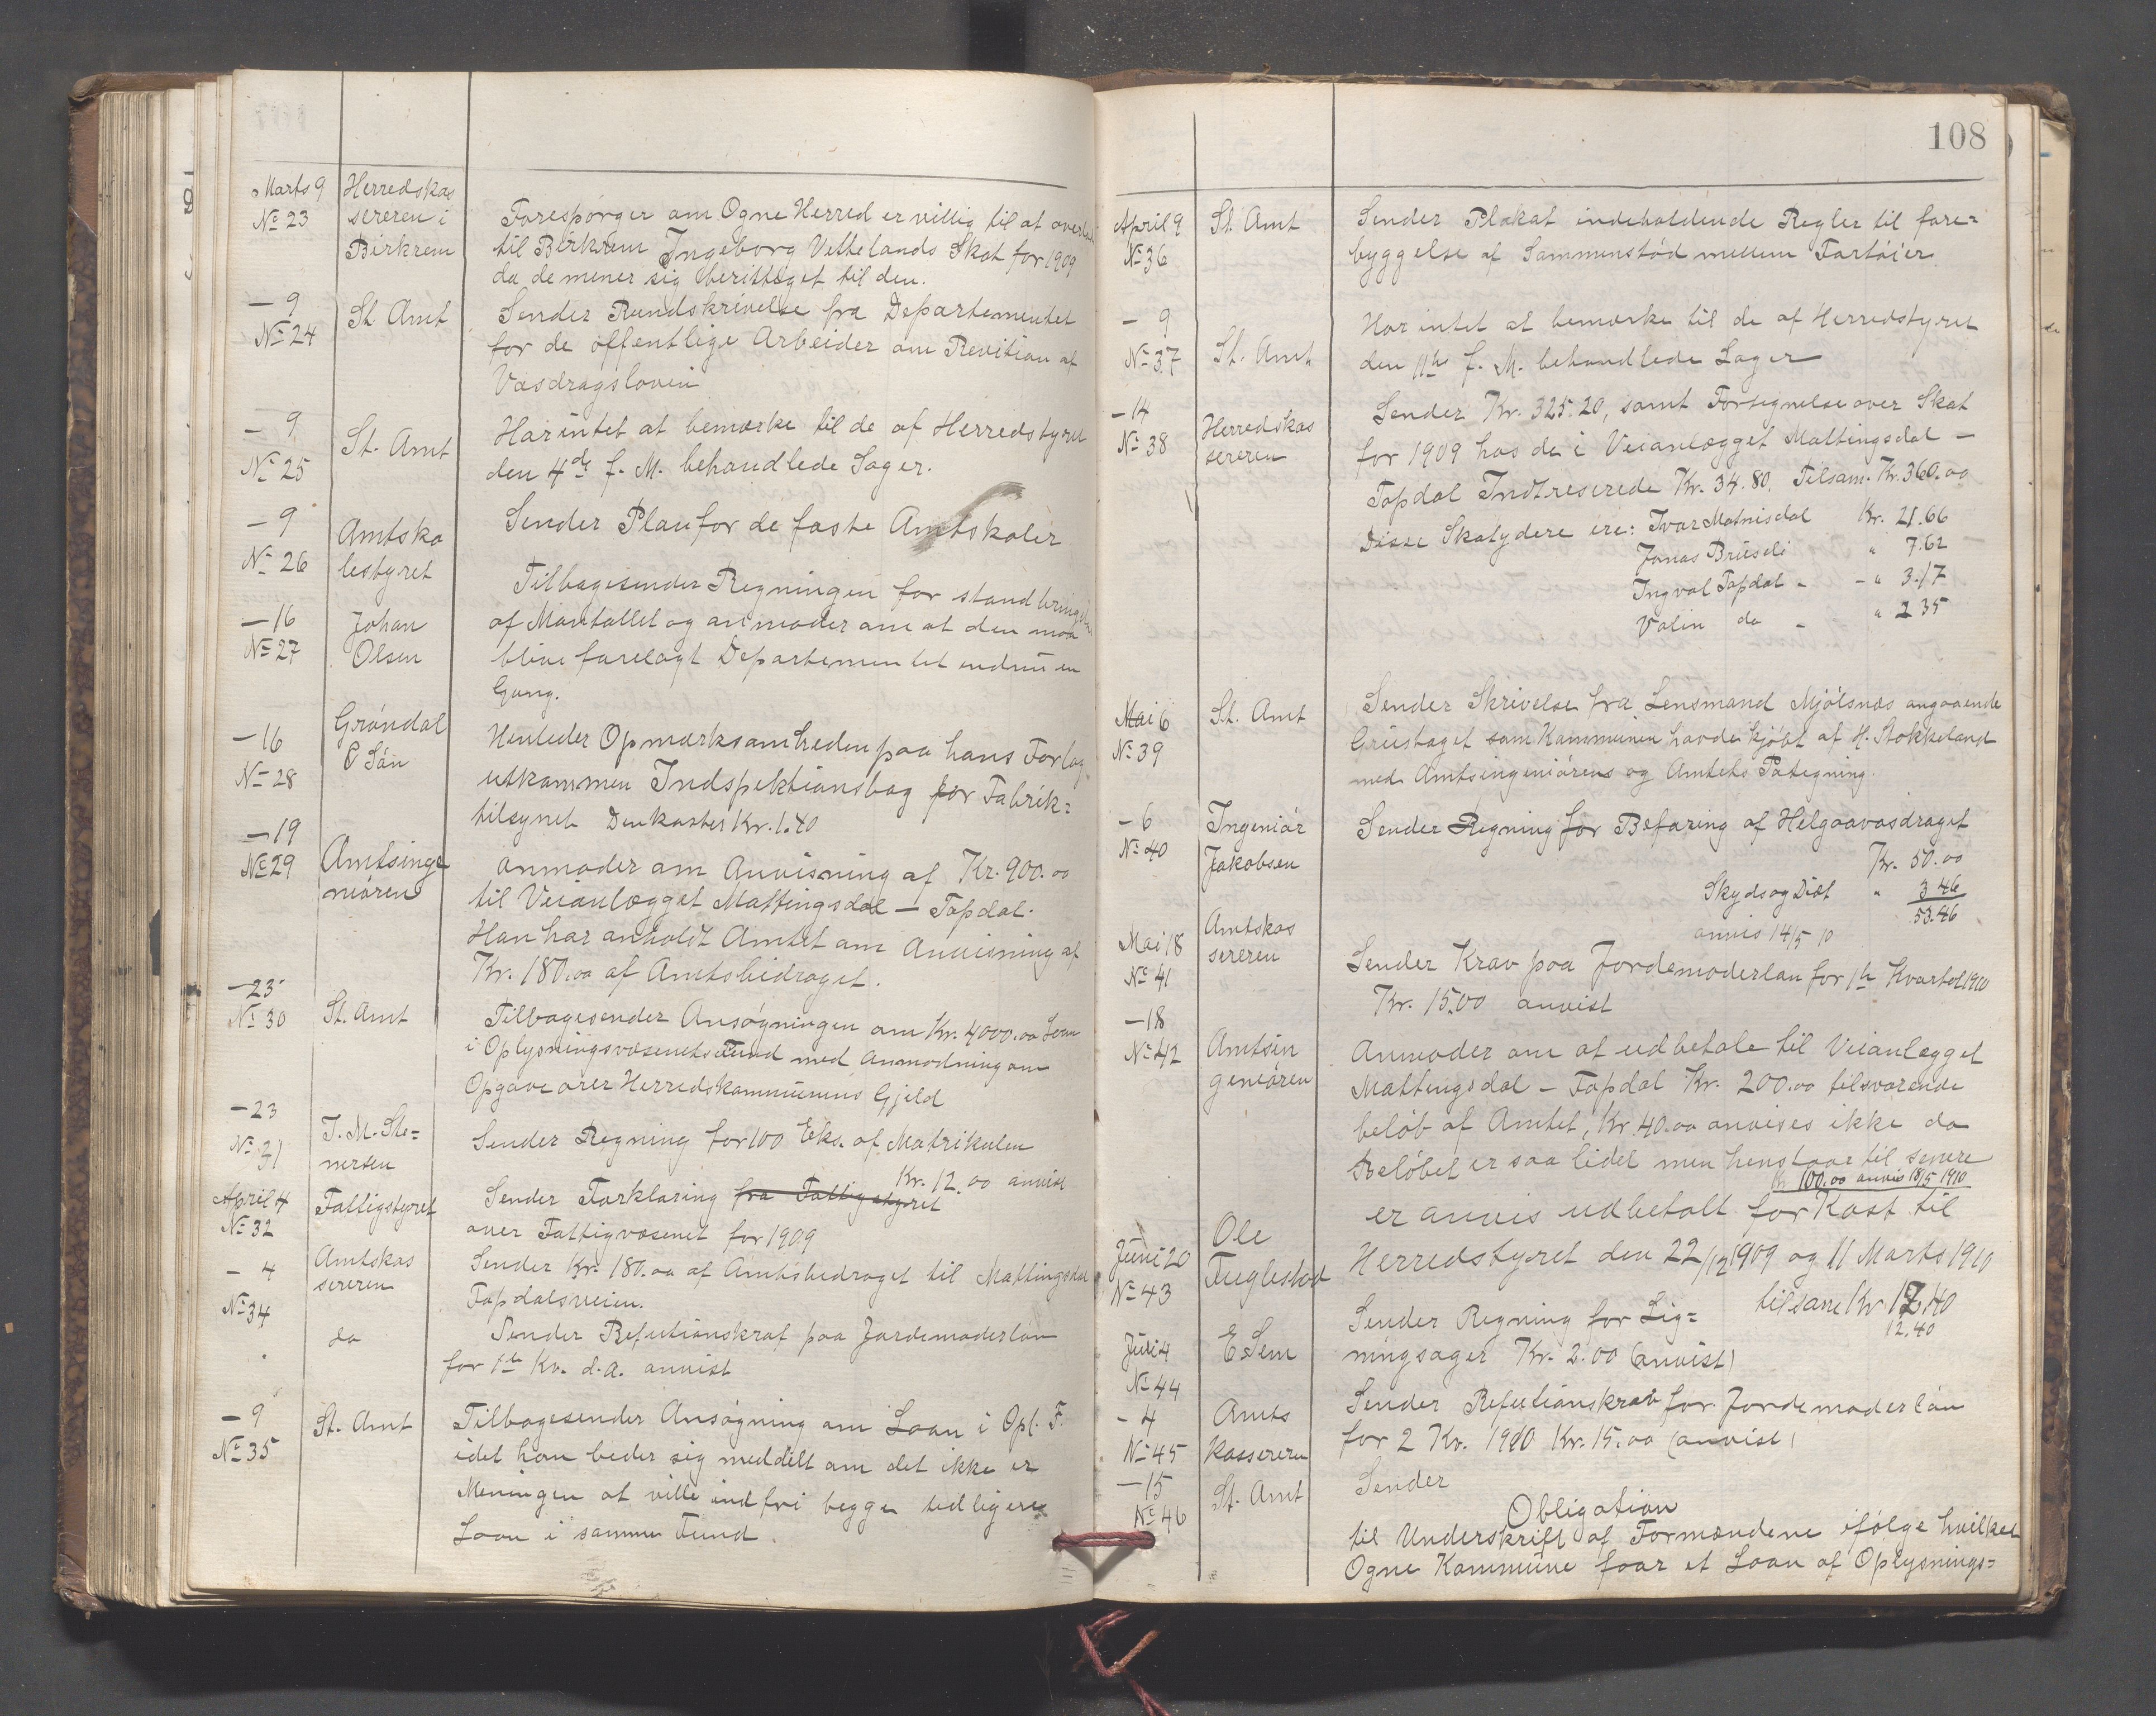 Marts 9 Herredskas
No 23 sereren i
Birkrem
Forespørger om Ogne Herred er villig til at
til Birkrem Ingeborg Vettelands Skat for 1909
da de mener sig berittiget til den.
— 9 No 24 St. Amt
Sender Rundskrivelse fra Departementet
for de offentlige Arbeider om Revition af
Vasdragsloven
— 9 No 25 St. Amt
Har intet at bemærke til de af Herredstyret
den 4de f. M. behandlede Sager.
— 9 No 26 Amtsko
lestyret
Sender Plan for de faste Amtskoler
— 16 No 27 Johan
Olsen
Tilbagesender Regningen for
af Mantallet og anmoder om at den maa
blive forelagt Departementet endnu en
Gang.
— 16 No 28 Grøndal
& Søn
Henleder Opmærksomheden paa hans Forlag
utkommen Indspektionsbog for Fabrik=
tilsynet Den koster Kr. 1.40
— 19 No 29 Amtsinge
niøren
anmoder om Anvisning af Kr. 900.00
til Veianlægget Mattingsdal — Tapdal.
Han har anholdt Amtet om Anvisning af
Kr. 180.00 af Amtsbidraget.
— 23 No 30 St. Amt
Tilbagesender Ansøgningen om Kr. 4000.00 Loan
i Oplysningsvæsenets Fund med Anmodning om
Opgave over Herredskommunens Gjeld
— 23 No 31 T. M. Ste=
nersen
Sender Regning for 100 Eks. af Matrikulen
Kr. 12.00 anvist
April 4 No 32 Fattigstyret
Sender Forklaring fra Fattigstyret
over Fattigvæsenet for 1909
— 4 No 34 Amtskas
sereren
Sender Kr. 180.00 af Amtsbedraget til Mattingsdal
Tapdalsveien.
do
Sender Refutionskraf paa Jordemoderløn
for 1te Kv. d.A. anvist
— 9 No 35 St. Amt
Tilbagesender Ansøgning om Loan i Opl. F.
idet han beder sig meddelt om det ikke er
Meningen at ville indfri begge tidligere
Loan i samme Fund.
108
April 9 No 36 St. Amt
Sender Plakat indeholdende Regler til fore=
byggelse af Sammenstød mellem Fartøier
— 9 No 37 St. Amt
Har intet at bemærke til de af Herredstyret
den 11te f. M. behandlede Sager
— 14 No 38 Herredskas
sereren
Sender Kr. 325.20, samt Fortegnelse over Skat
for 1909 hos de i Veianlægget Mattingsdal —
Tapdal Indtreserede Kr. 34.80. Tilsam. Kr. 360.00
Disse Skatydere ere: Ivar Matnisdal Kr. 21.66
Jonas Bruseli " 7.62
Ingval Tapdal - - " 3.17
Valin do - " 2 35
Mai 6 No 39 St. Amt
Sender Skrivelse fra Lensmand Mjølsnæs angaaende
Grustaget som Kommunen havde kjøbt af H. Stokkeland
med Amtsingeniørens og Amtets Pategning.
— 6 No 40 Ingeniør
Jakobsen
Sender Regning for Befaring af Helgaavasdraget
Kr. 50.00
Skyds og Diæt " 3 46
53.46
anvis 14/5 10
Mai 18 No 41 Amtskas
sereren
Sender Krav paa Jordemoderløn for 1te Kvartal 1910
Kr. 15.00 anvist
— 18 No 42 Amtsin
geniøren
Anmoder om at udbetale til Veianlægget
Mattingsdal — Tapdal Kr. 200.00 tilsvarende
beløb af Amtet, Kr. 40.00 anvises ikke da
Beløbet er saa lidet men henstaar til senere
Kr 100.00 anvis 18/5 1910
Juni 20 No 43 Ole
Fuglestad
er anvis udbetalt for Kost til
Herredstyret den 22/12 1909 og 11 Marts 1910
tilsam Kr 12,40
12.40
Juli 4 No 44 E Sem
Sender Regning for Lig=
ningsager Kr. 2.00 (anvist)
- 4 No 45 Amts
kassereren
Sender Refutionskrav for Jordemoderløn
for 2 Kv. 1910 Kr. 15.00 (anvist)
— 15 No 46 St. Amt
Sender
Obligation
til Underskrift af Formændene ifølge hvilket
Ogne Kommune faar et Loan af Oplysnings=